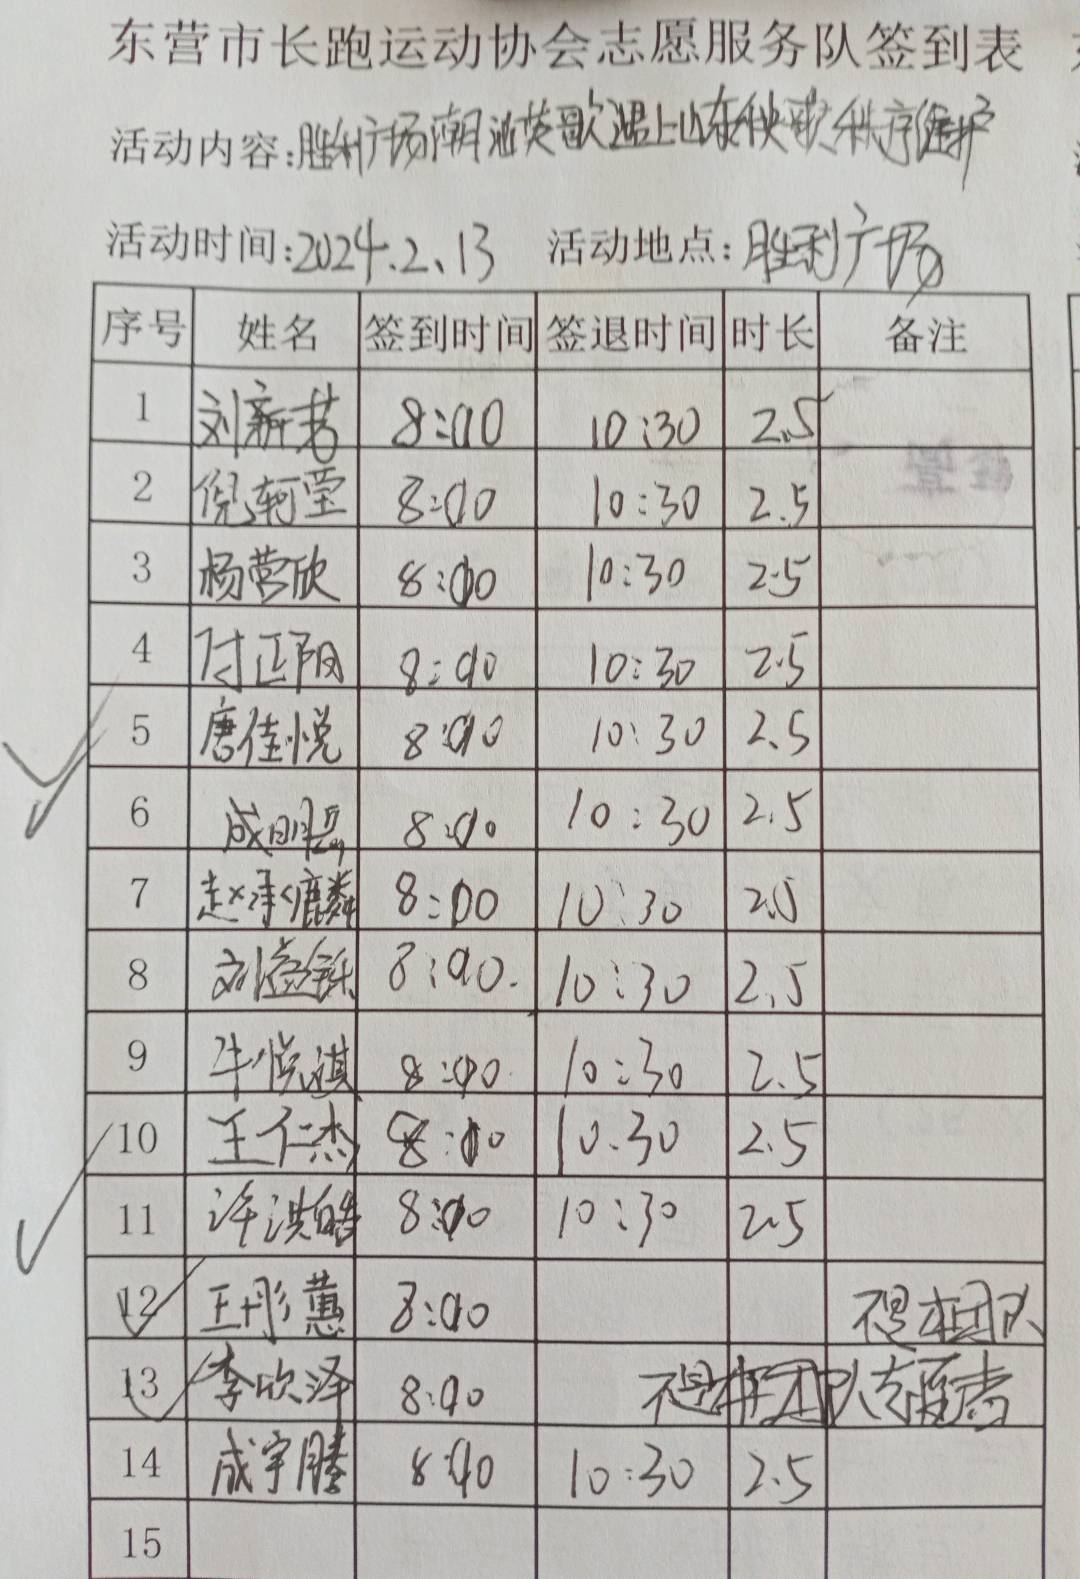 东营市长跑运动协会志愿服务队签到表
活动内容:胜利广场潮汕英歌遇上山东秧歌秩序维护
活动时间:2024.2.13 活动地点:胜利广场
序号 姓名 签到时间 签退时间 时长 备注
1 刘新茗 8:00 10:30 2.5
2 倪轲莹 8:00 10:30 2.5
3 杨营欣 8:00 10:30 2.5
4 付正阳 8:00 10:30 2.5
5 唐佳悦 8:00 10:30 2.5
6 成明磊 8:00 10:30 2.5
7 赵泽麒麟 8:00 10:30 2.5
8 刘益铄 8:00 10:30 2.5
9 牛悦祺 8:00 10:30 2.5
10 王仁杰 8:00 10.30 2.5
11 许洪皓 8:00 10:30 2.5
12 王彤蕙 8:00 不是本团队
13 李欣泽 8:00 不是本团队志愿者
14 成宇腾 8:00 10:30 2.5
15